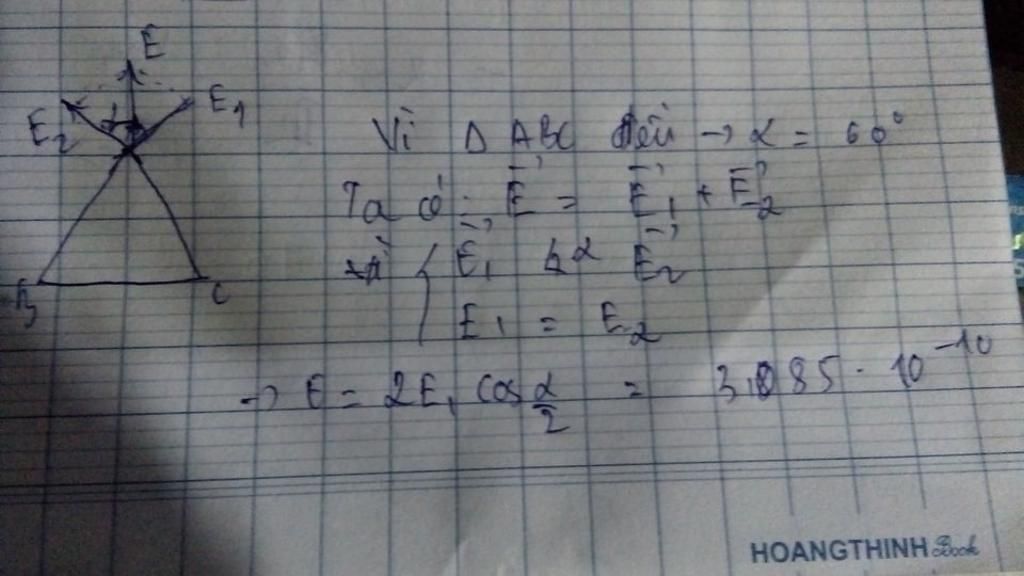 E
E₂ α E₁
Vì Δ ABC đều → α = 60°
Ta có: E⃗ = E⃗₁ + E⃗₂
E⃗₁ α E⃗₂
E₁ = E₂
B C
→ E = 2E₁ cos α/2 = 3,085 . 10⁻¹⁰
HOANGTHINH Book